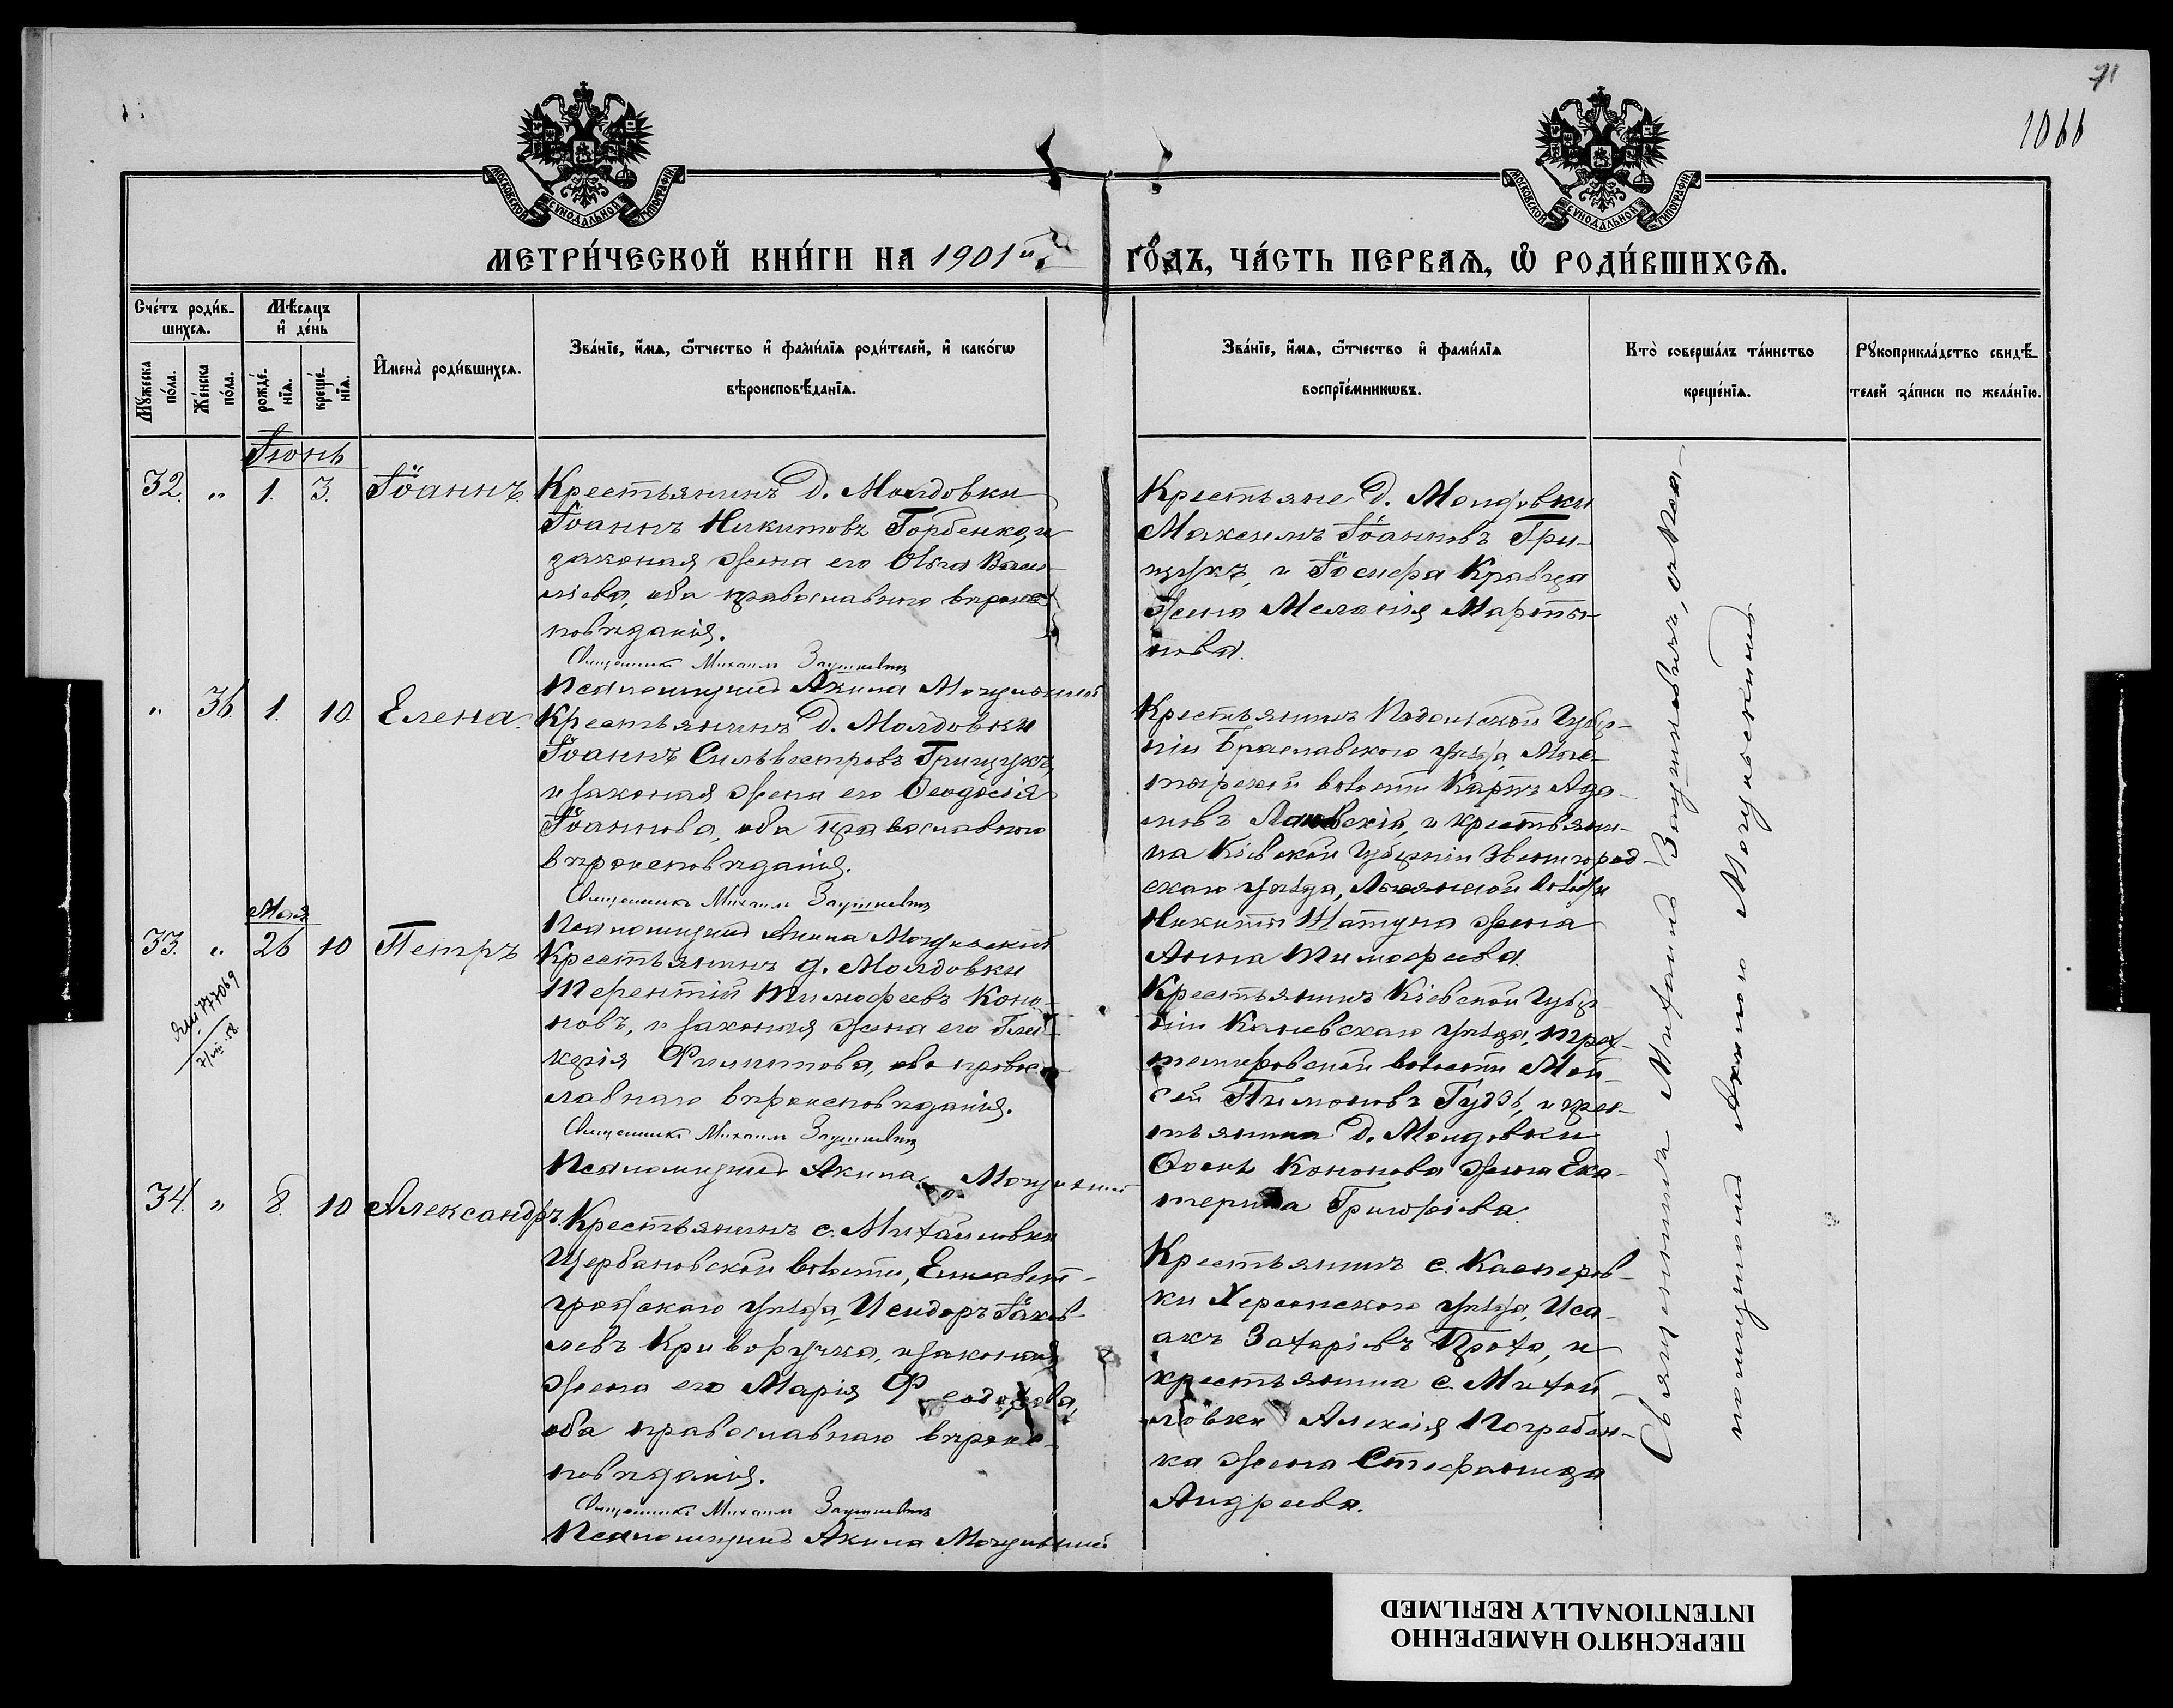 71
1066
МОСКОВСКОЙ СУНОДАЛЬНОЙ ТИПОГРАФІИ
МОСКОВСКОЙ СУНОДАЛЬНОЙ ТИПОГРАФІИ
МЕТРИ́ЧЕСКОЙ КНИ́ГИ НА 1901й
ГО́ДЪ, ЧА́СТЬ ПЕРВАѦ, Ѡ РОДИ́ВШИХСѦ.
Сче́тъ роди́в-
шихсѧ.
Мꙋ́жеска по́ла.
Же́нска по́ла.
Мѣ́сѧцъ
и҆ де́нь
рожде́-
нїѧ.
креще́-
нїѧ.
И҆мена̀ роди́вшихсѧ.
Зва́нїе, и҆́мѧ, ѻ҆́тчество и҆ фами́лїѧ роди́телей, и҆ како́гѡ
вѣроисповѣ́данїѧ.
Зва́нїе, и҆́мѧ, ѻ҆́тчество и҆ фами́лїѧ
воспрїе́мникѡвъ.
Кто̀ соверша́лъ та́инство
креще́нїѧ.
Рꙋкоприкла́дство свидѣ́-
телей за́писи по жела́нїю.
Іюнь
32. „ 1. 3. Іоаннъ
Крестьянинъ д. Молдовки
Іоаннъ Никитовъ Горбенко, и
законая жена его Ольга Васи-
ліева, оба православнаго вѣроис-
повѣданія.
Священникъ Михаилъ Заушкевичъ
Псаломщикъ Акила Мочульскій
Крестьяне д. Молдовки
Максимъ Іоанновъ Гри-
щукъ, и Іосифа Кравца
жена Меланія Марты-
нова.
„ 36. 1. 10. Елена.
Крестьянинъ д. Молдовки
Іоаннъ Сильвестровъ Грищукъ,
и законая жена его Ѳеодосія
Іоаннова, оба православнаго
вѣроисповѣданія.
Священникъ Михаилъ Заушкевичъ
Псаломщикъ Акила Мочульскій
Крестьянинъ Подольской Губер-
ніи Брацлавскаго уѣзда,
волости Карпъ Ада-
мовъ и крестьяни-
на Кіевской Губерніи Звенигород-
скаго уѣзда, волости
Никиты Шатуна жена
Анна Тимофеева.
Мая
33. „ 26 10 Петръ
777069
7/VIII 58.
Крестьянинъ д. Молдовки
Терентій Тимофеевъ Коно-
новъ, и законая жена его Гли-
керія Филиппова, оба правос-
лавнаго вѣроисповѣданія.
Священникъ Михаилъ Заушкевичъ
Псаломщикъ Акила Мочульскій
Крестьянинъ Кіевской Губер-
ніи Каневскаго уѣзда, Трах-
темировской волости Мои-
сей Пимоновъ Гудзь, и крес-
тьянина д. Молдовки
Кононова жена Ека-
терина Григоріева.
34. „ 8. 10 Александръ.
Крестьянинъ с. Михайловки
Щербановской волости, Елисавет-
градскаго уѣзда, Исидоръ Іаков-
левъ Криворучка, и законая
жена его Марія Феодорова,
оба православнаго вѣроис-
повѣданія.
Священникъ Михаилъ Заушкевичъ
Псаломщикъ Акила Мочульскій
Крестьянинъ с. Касперов-
ки Херсонскаго уѣзда, Иса-
акъ Захаріевъ и
крестьянина с. Михай-
ловки Алексія Погребен-
ка жена Стефанида
Андреева.
Священникъ Михаилъ Заушкевичъ, съ Пса-
ломщикомъ Акилою Мочульскимъ
ПЕРЕСНЯТО НАМЕРЕННО
INTENTIONALLY REFILMED